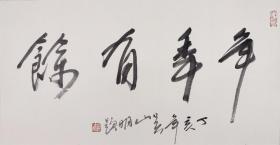 年年有餘
丁亥年吴山明题